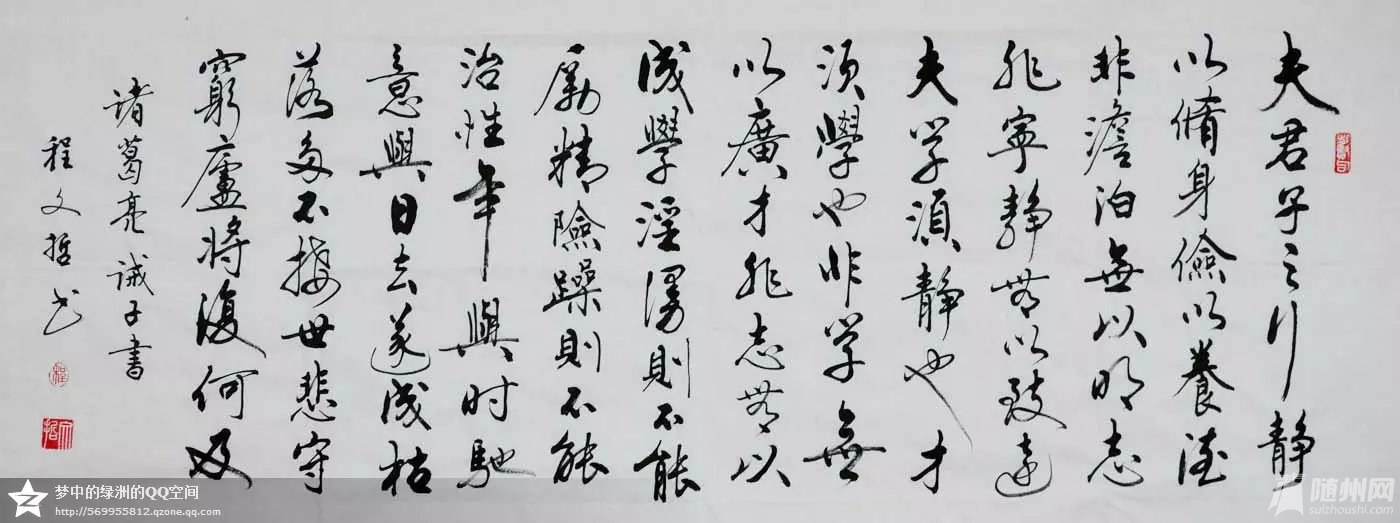 夫君子之行静
以脩身儉以養德
非澹泊無以明志
非寧静無以致遠
夫学須静也才
須學也非学無
以廣才非志無以
成學淫漫則不能
勵精險躁則不能
治性年與时馳
意與日去遂成枯
落多不接世悲守
窮廬将復何及
诸葛亮诫子書
程文哲书
梦中的绿洲的QQ空间
http://569955812.qzone.qq.com
随州网
suizhoushi.com